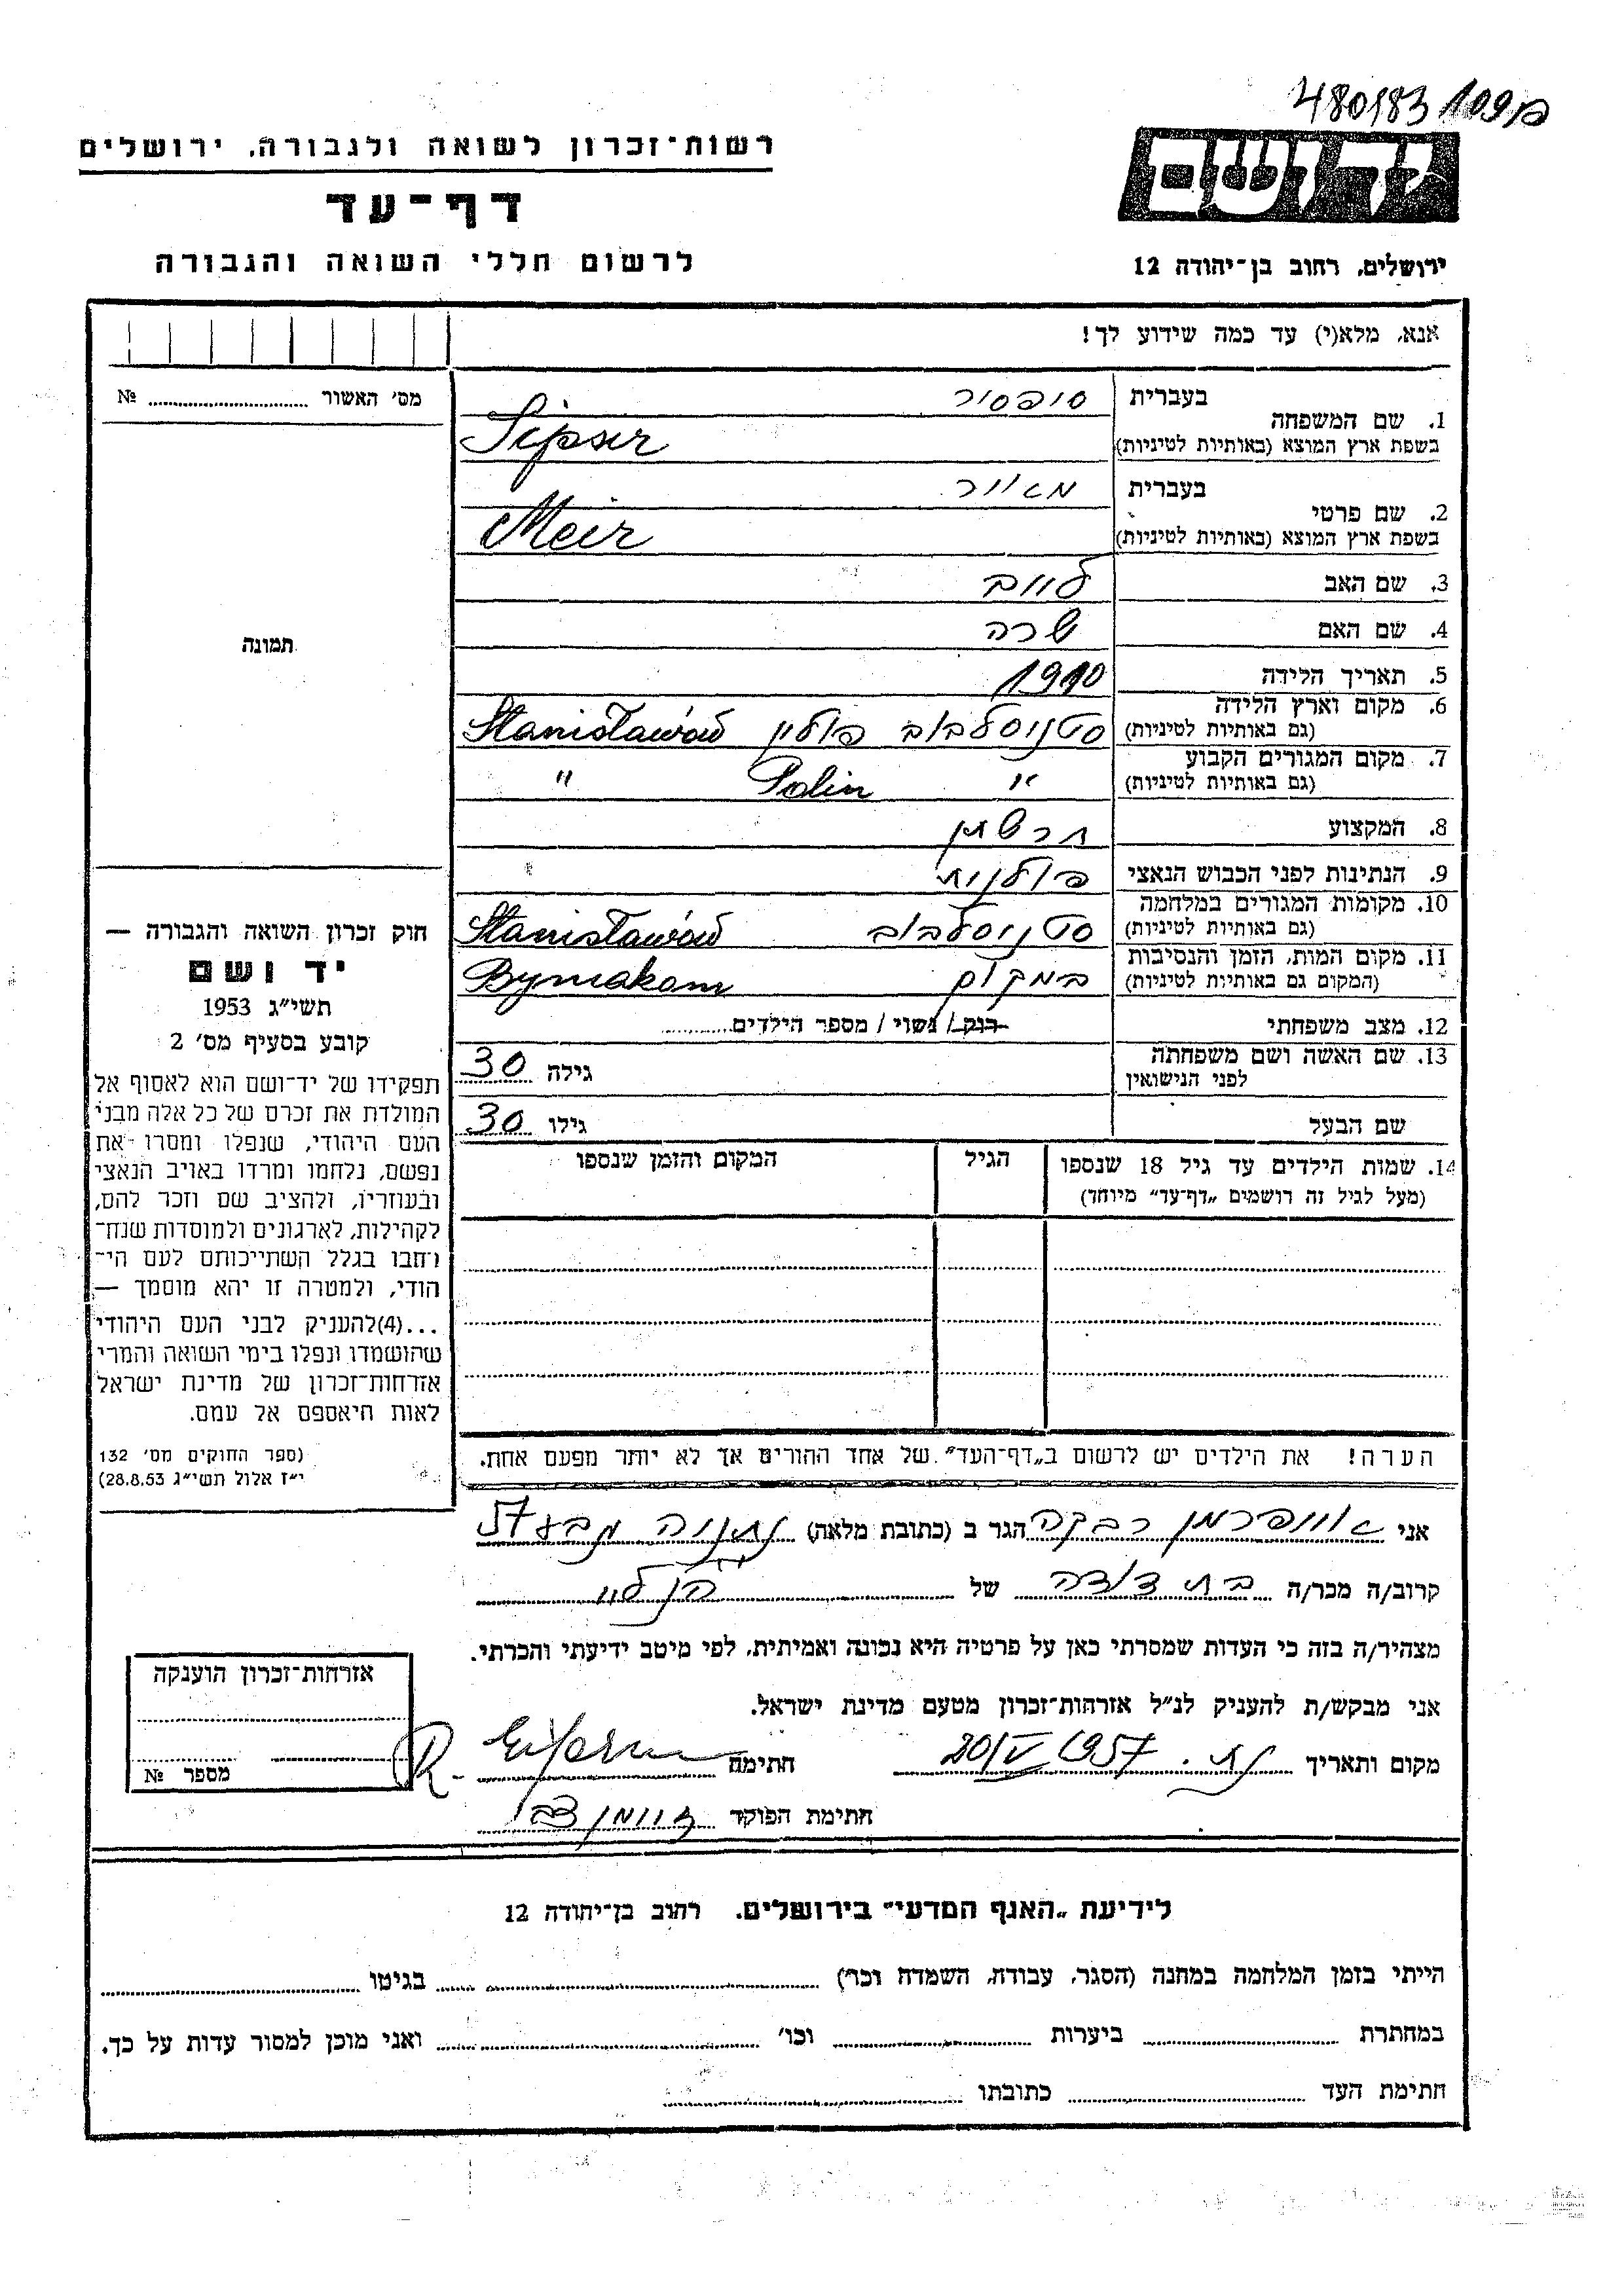 480/83 109פ
יד ושם
ירושלים, רחוב בן־יהודה 12
רשות־זכרון לשואה ולגבורה, ירושלים
דף־עד
לרשום חללי השואה והגבורה
אנא, מלא(י) עד כמה שידוע לך!
מס' האשור № ........
תמונה
1. שם המשפחה
בעברית סיפסיר
בשפת ארץ המוצא (באותיות לטיניות) Sipsir
2. שם פרטי
בעברית מאיר
בשפת ארץ המוצא (באותיות לטיניות) Meir
3. שם האב לייב
4. שם האם שרה
5. תאריך הלידה 1910
6. מקום וארץ הלידה
(גם באותיות לטיניות) סטניסלבוב פולין Stanisławów
7. מקום המגורים הקבוע
(גם באותיות לטיניות) " Polin "
8. המקצוע חרשתן
9. הנתינות לפני הכבוש הנאצי פולנית
10. מקומות המגורים במלחמה
(גם באותיות לטיניות) סטניסלבוב Stanisławów
11. מקום המות, הזמן והנסיבות
(המקום גם באותיות לטיניות) במקום Bymakom
12. מצב משפחתי רוק / נשוי / מספר הילדים........
13. שם האשה ושם משפחתה
לפני הנישואין גילה 30
שם הבעל גילו 30
14. שמות הילדים עד גיל 18 שנספו
(מעל לגיל זה רושמים „דף־עד" מיוחד)
הגיל
המקום והזמן שנספו
חוק זכרון השואה והגבורה —
יד ושם
תשי"ג 1953
קובע בסעיף מס' 2
תפקידו של יד־ושם הוא לאסוף אל
המולדת את זכרם של כל אלה מבני
העם היהודי, שנפלו ומסרו את
נפשם, נלחמו ומרדו באויב הנאצי
ובעוזריו, ולהציב שם וזכר להם,
לקהילות, לארגונים ולמוסדות שנח־
רחבו בגלל השתייכותם לעם הי־
הודי, ולמטרה זו יהא מוסמך —
...(4)להעניק לבני העם היהודי
שהושמדו ונפלו בימי השואה והמרי
אזרחות־זכרון של מדינת ישראל
לאות היאספם אל עמם.
(ספר החוקים מס' 132
י"ז אלול תשי"ג 28.8.53)
הערה! את הילדים יש לרשום ב„דף־העד" של אחד ההורים אך לא יותר מפעם אחת.
אני אייפרמן רבקה הגר ב (כתובת מלאה) נתניה
קרוב/ה מכר/ה בת דודה של
מצהיר/ה בזה כי העדות שמסרתי כאן על פרטיה היא נכונה ואמיתית, לפי מיטב ידיעתי והכרתי.
אני מבקש/ת להעניק לנ"ל אזרחות־זכרון מטעם מדינת ישראל.
מקום ותאריך נת. 20/V 1957 חתימה R.
חתימת הפוקד
אזרחות־זכרון הוענקה
מספר №
לידיעת „האגף המדעי" בירושלים, רחוב בן־יהודה 12
הייתי בזמן המלחמה במחנה (הסגר, עבודה, השמדה וכו') ........ בגיטו ........
במחתרת ........ ביערות ........ וכו' ........ ואני מוכן למסור עדות על כך.
חתימת העד ........ כתובתו ........